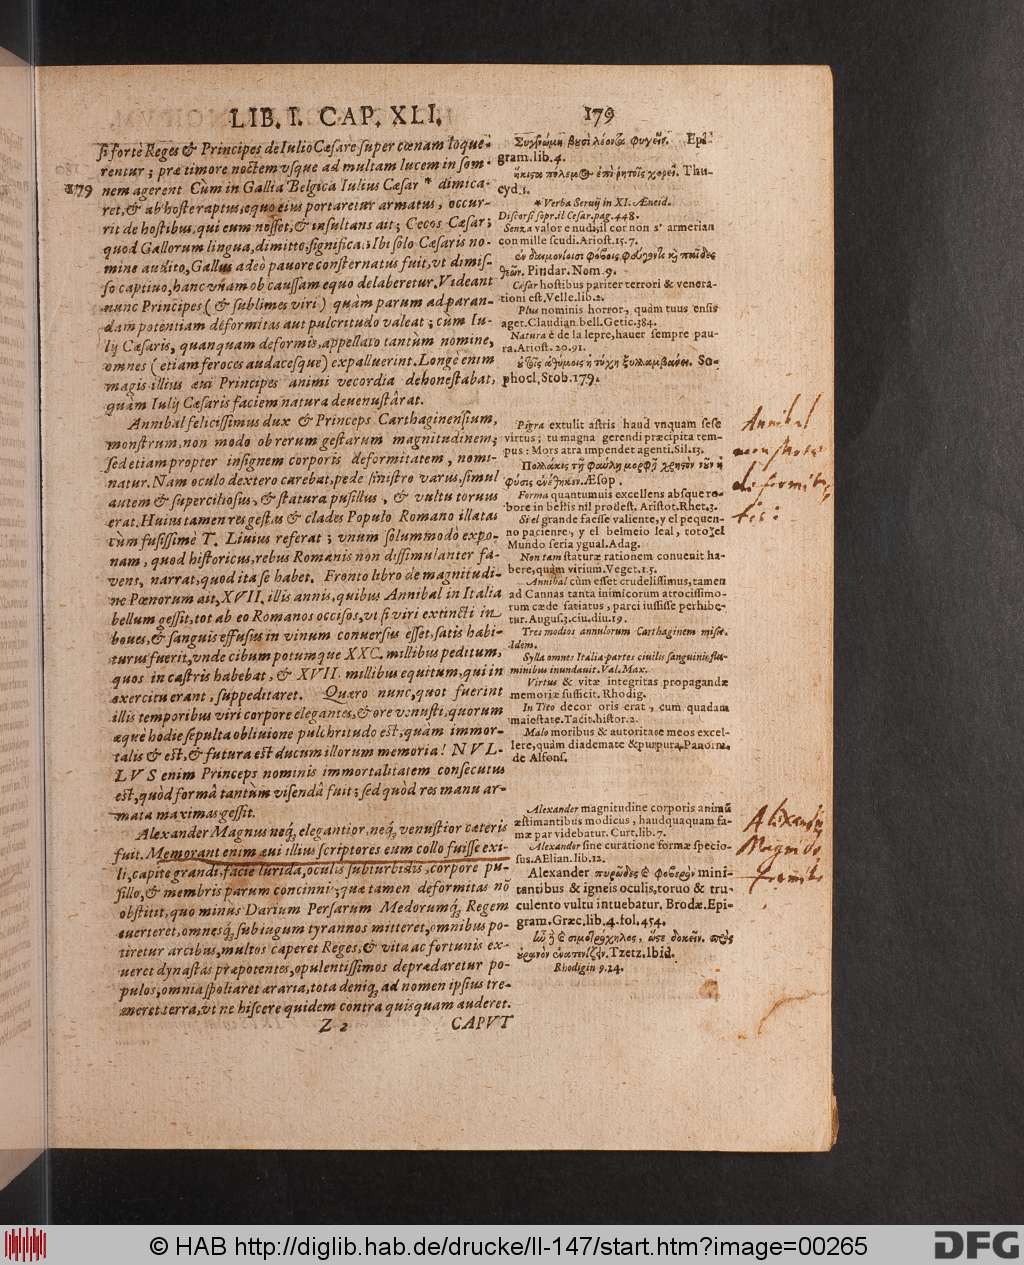 LIB. I. CAP. XLI. 179
si fortè Reges & Principes de Iulio Cæsare super cœnam loque-
rentur; præ timore noctem vsque ad multam lucem in som-
179 nem agerent Cùm in Gallia Belgica Iulius Cæsar * dimica-
ret, & ab hoste raptus, equo eius portaretur armatus, occur-
rit de hostibus, qui eum nosset, & insultans ait; Cecos Cæsar;
quod Gallorum lingua, dimitte, significat; Ibi solo Cæsaris no-
mine audito, Gallus adeò pauore consternatus fuit, vt dimis-
so captiuo, hanc vnam ob caussam equo delaberetur. Videant
nunc Principes (& sublimes viri) quàm parum ad paran-
dam potentiam deformitas aut pulcritudo valeat; cùm Iu-
lij Cæsaris, quanquam deformis, appellato tantùm nomine,
omnes (etiam feroces audacesque) expalluerint. Longè enim
magis illius æui Principes animi vecordia dehonestabat,
quàm Iulij Cæsaris faciem natura deuenustârat.
Annibal felicissimus dux & Princeps Carthaginensium,
monstrum, non modo ob rerum gestarum magnitudinem;
sed etiam propter insignem corporis deformitatem, nomi-
natur. Nam oculo dextero carebat, pede sinistro varus, simul
autem & superciliosus, & statura pusillus, & vultu toruus
erat. Huius tamen res gestas & clades Populo Romano illatas
cùm fusissimè T. Liuius referat; vnum solummodò expo-
nam, quod historicus, rebus Romanis non dissimulanter fa-
vens, narrat, quod ita se habet. Fronto libro de magnitudi-
ne Pœnorum ait, XVII. illis annis, quibus Annibal in Italia
bellum gessit, tot ab eo Romanos occisos, vt si viri extincti in
boues, & sanguis effusus in vinum conuersus esset, satis habi-
turus fuerit, vnde cibum potumque XXC. millibus peditum,
quos in castris habebat, & XVII. millibus equitum, qui in
exercitu erant, suppeditaret. Quæro nunc, quot fuerint
illis temporibus viri corpore elegantes, & ore venusti, quorum
æque hodie sepulta obliuione pulchritudo est, quàm immor-
talis & est, & futura est ducum illorum memoria! NVL-
LVS enim Princeps nominis immortalitatem consecutus
est, quòd formâ tantùm visendâ fuit; sed quòd res manu ar-
mata maximas gessit.
Alexander Magnus neq́; elegantior, neq́; venustior cæteris
fuit. Memorant enim æui illius scriptores eum collo fuisse exi-
li, capite grandi, facie lurida, oculis subturbidis, corpore pu-
sillo, & membris parum concinni; quæ tamen deformitas nõ
obstitit, quo minus Darium Persarum Medorumq́; Regem
euerteret, omnesq́; sub iugum tyrannos mitteret, omnibus po-
tiretur arcibus, multos caperet Reges, & vita ac fortunis ex-
ueret dynastas præpotentes, opulentissimos deprædaretur po-
pulos, omnia spoliaret æraria, tota deniq́; ad nomen ipsius tre-
meret terra, vt ne hiscere quidem contra quisquam auderet.
Z 2 CAPVT
Συγγνώμη βυσὶ λέοντα φυγεῖν. Epi-
gram. lib. 4.
ἥκιστα πόλεμος ἐπὶ ῥητοῖς χορεῖ. Thu-
cyd. 1.
* Verba Seruij in XI. Æneid.
Discorsi sopr. il Cesar. pag. 448.
Senza valor e nudi, il cor non s' armerian
con mille scudi. Ariost. 15. 7.
παῖδες
θεῶν. Pindar. Nem. 9.
Cæsar hostibus pariter terrori & venera-
tioni est. Velle. lib. 2.
Plus nominis horror, quàm tuus ensis
aget. Claudian. bell. Getic. 384.
Natura è de la lepre, hauer sempre pau-
ra. Ariost. 20. 91.
ἀθύμοις ἡ τύχη ξυλλαμβάνει. So-
phocl. Stob. 179.
Pigra extulit astris haud vnquam sese
virtus; tu magna gerendi præcipita tem-
pus: Mors atra impendet agenti. Sil. 13.
Πολλάκις τῇ φαύλῃ μορφῇ χρηστὸν νοῦν ἡ
φύσις Æsop.
Forma quantumuis excellens absque ro-
bore in bellis nil prodest. Aristot. Rhet. 3.
Si el grande faesse valiente, y el pequen-
no pacienre, y el belmeio leal, toto el
Mundo seria ygual. Adag.
Non tam staturæ rationem conuenit ha-
bere, quàm virium. Veget. 1. 5.
Annibal cùm esset crudelissimus, tamen
ad Cannas tanta inimicorum atrocissimo-
rum cæde satiatus, parci iussisse perhibe-
tur. Augus. 3. ciu. diu. 19.
Tres modios annulorum Carthaginem misit.
Idem.
Sylla omnes Italiæ partes ciuilis sanguinis flu-
minibus inundauit. Val. Max.
Virtus & vitæ integritas propagandæ
memoriæ sufficit. Rhodig.
In Tito decor oris erat, cum quadam
maiestate. Tacit. histor. 2.
Malo moribus & autoritate meos excel-
lere, quàm diademate & purpura. Panorm.
de Alfons.
Alexander magnitudine corporis animũ
æstimantibus modicus, haudquaquam fa-
mæ par videbatur. Curt. lib. 7.
Alexander sine curatione formæ specio-
sus. AElian. lib. 12.
Alexander πυρῶδες & φοβερὸν mini-
tantibus & igneis oculis, toruo & tru-
culento vultu intuebatur. Brodæ. Epi-
gram. Græc. lib. 4. fol. 454.
σιμοτράχηλος, ὥστε δοκεῖν, πρὸς
οὐρανὸν ἐνατενίζειν. Tzetz. Ibid.
Rhodigin 9. 24.
Annibal
monstrosæ
deformita
tis:
Alexandri
Magni de
formitas
© HAB http://diglib.hab.de/drucke/ll-147/start.htm?image=00265
DFG